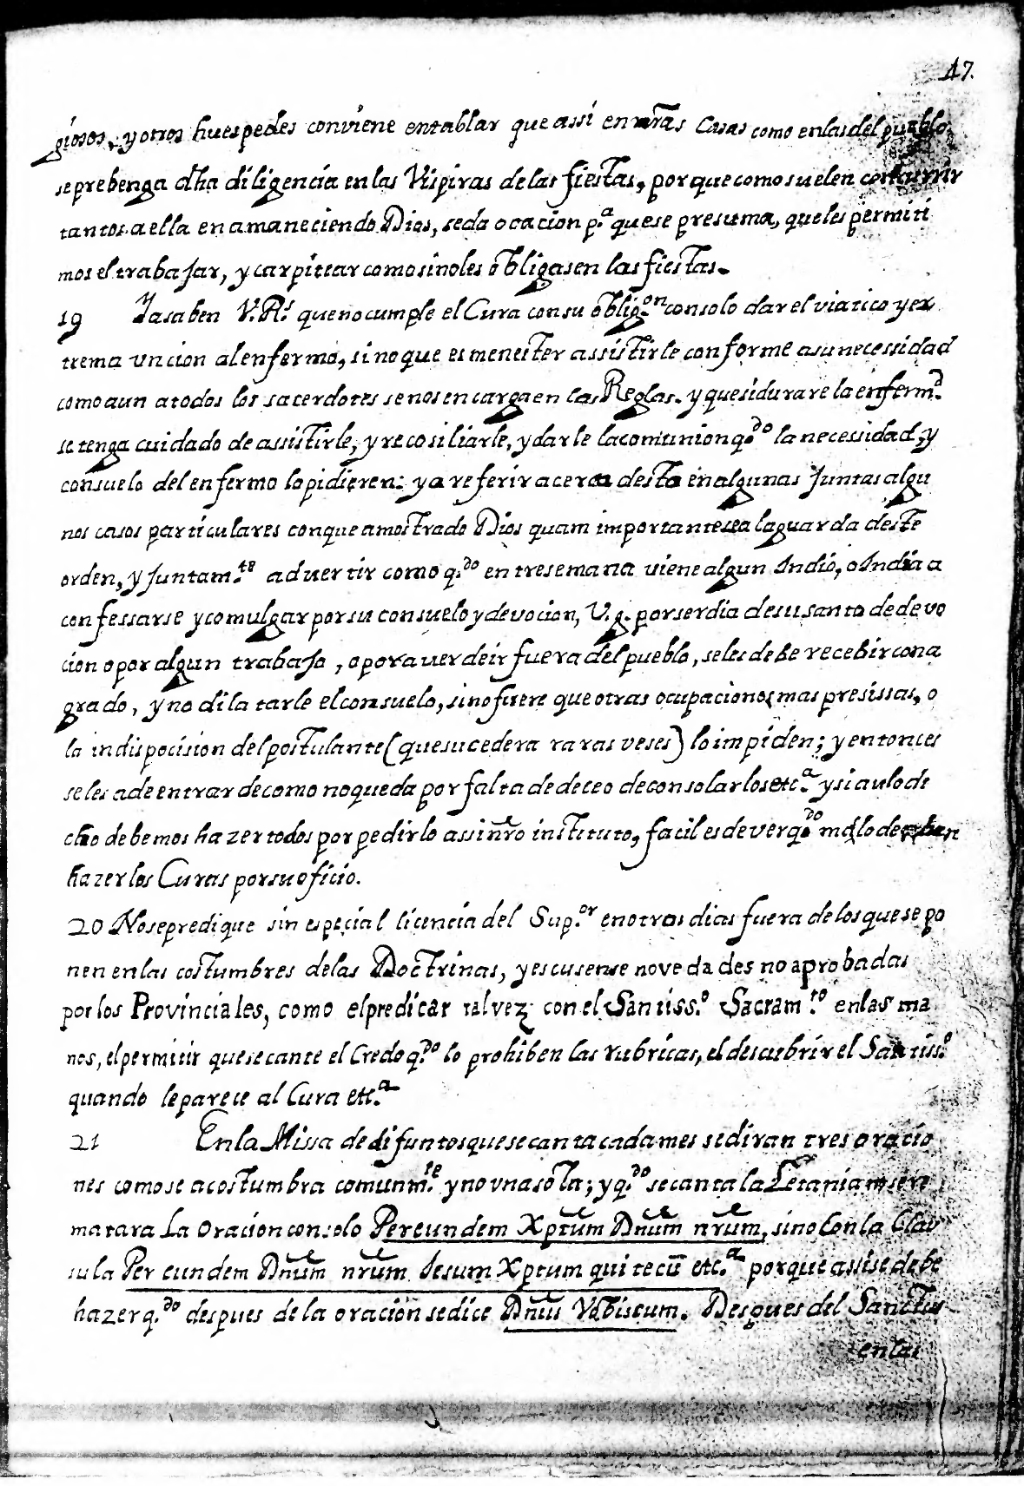 47.
giosos, y otros huespedes conviene entablar que assi en nr̃as Casas como en las del pueblo
se prebenga dħa diligencia en las Vispiras de las fiestas, porque como suelen concurrir
tantos a ella en amaneciendo Dios, se da ocacion p.ª que se presuma, que les permiti
mos el trabajar, y carpitear como sino les obligasen las fiestas.
19 Ya saben V. R.s que no cumple el Cura con su oblig.on con solo dar el viatico y ex
trema uncion al enfermo, sino que es menester assistirle conforme a su necessidad
como aun a todos los sacerdotes se nos encarga en las Reglas. y que si durare la enferm.d
se tenga cuidado de assistirle, y recosiliarle, y darle la comunion q.do la necessidad, y
consuelo del enfermo lo pidieren: ya referir acerca desto en algunas Juntas algu
nos casos particulares con que a mostrado Dios quam importante sea la guarda deste
orden, y Juntam.te advertir como q.do entre semana viene algun Indio, o India a
confessarse y comulgar por su consuelo y devocion, V.g. por ser dia de su santo de devo
cion o por algun trabajo, o para ver de ir fuera del pueblo, se les debe recebir con a
grado, y no dilatarle el consuelo, sino fuere que otras ocupaciones mas presissas, o
la indispocision del postulante (que sucedera raras veses) lo impiden; y entonces
se les a de entrar de como no queda por falta de deceo de consolarlos etc.ª y si aulo di
cħo debemos hazer todos por pedirlo assi nr̃o instituto, facil es de ver q.do mas lo deben
hazer los Curas por su oficio.
20 No se predique sin especial licencia del Sup.or en otros dias fuera de los que se po
nen en las costumbres de las Doctrinas, y escusense novedades no aprobadas
por los Provinciales, como el predicar tal vez con el Santiss.o Sacram.to en las ma
nos, el permitir que se cante el Credo q.do lo prohiben las rubricas, el descubrir el Santiss.o
quando le parece al Cura etc.ª
21 En la Missa de difuntos que se canta cada mes se diran tres oracio
nes como se acostumbra comunm.te y no una sola; y q.do se canta la Letania
matara La Oracion con solo Per eundem Xptum Dñum nr̃um, sino con la Clau
sula Per eundem Dñum nr̃um Jesum Xptum qui tecũ etc.ª porque assi se debe
hazer q.do despues de la oracion se dice Dñus Vobiscum. Despues del Sanctus
en las